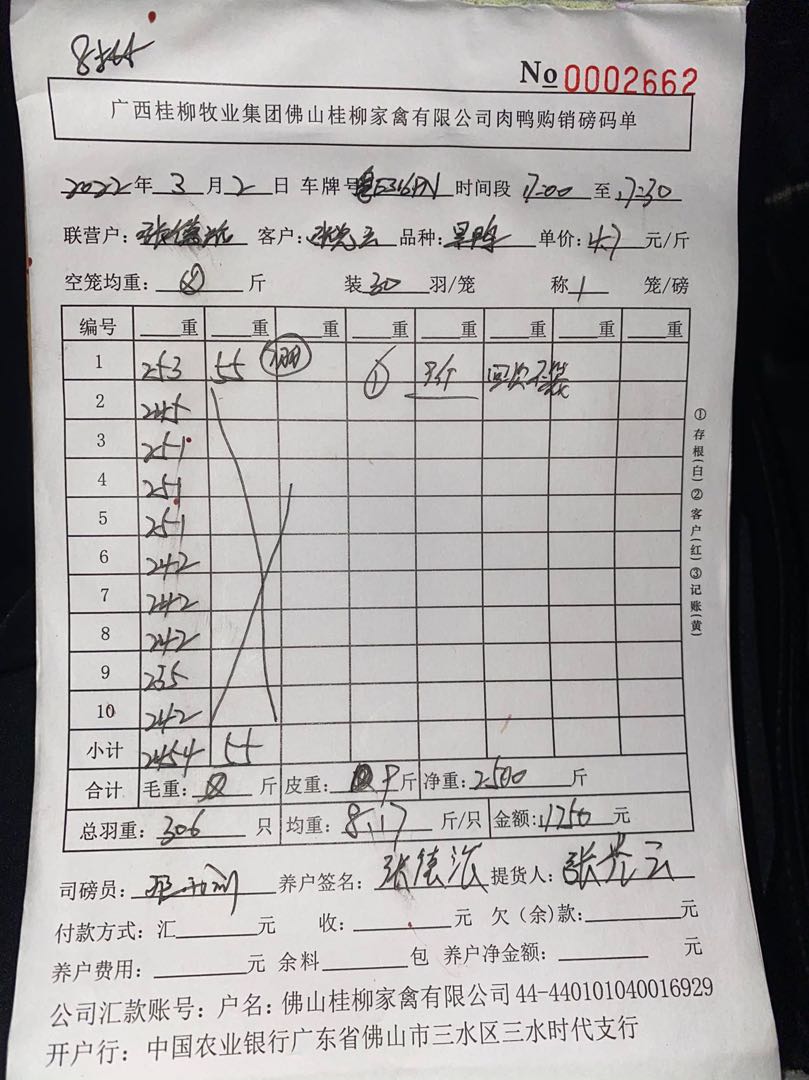 No 0002662
广西桂柳牧业集团佛山桂柳家禽有限公司肉鸭购销磅码单
2022年 3 月 2 日 车牌号 时间段 17:00 至 17:30
联营户: 张德派 客户: 品种: 单价: 4.7 元/斤
空笼均重: 斤 装 30 羽/笼 称 1 笼/磅
编号 重 重 重 重 重 重 重 重
1 253 55 ①
2 245
3 251
4 251
5 251
6 242
7 242
8 242
9 235
10 242
小计 2454 55
合计 毛重: 斤 皮重: 斤 净重: 2500 斤
总羽重: 306 只 均重: 8.17 斤/只 金额: 11750 元
司磅员: 养户签名: 张德派 提货人:
付款方式: 汇 元 收: 元 欠(余)款: 元
养户费用: 元 余料 包 养户净金额: 元
公司汇款账号: 户名: 佛山桂柳家禽有限公司 44-440101040016929
开户行: 中国农业银行广东省佛山市三水区三水时代支行
①存根(白)②客户(红)③记账(黄)